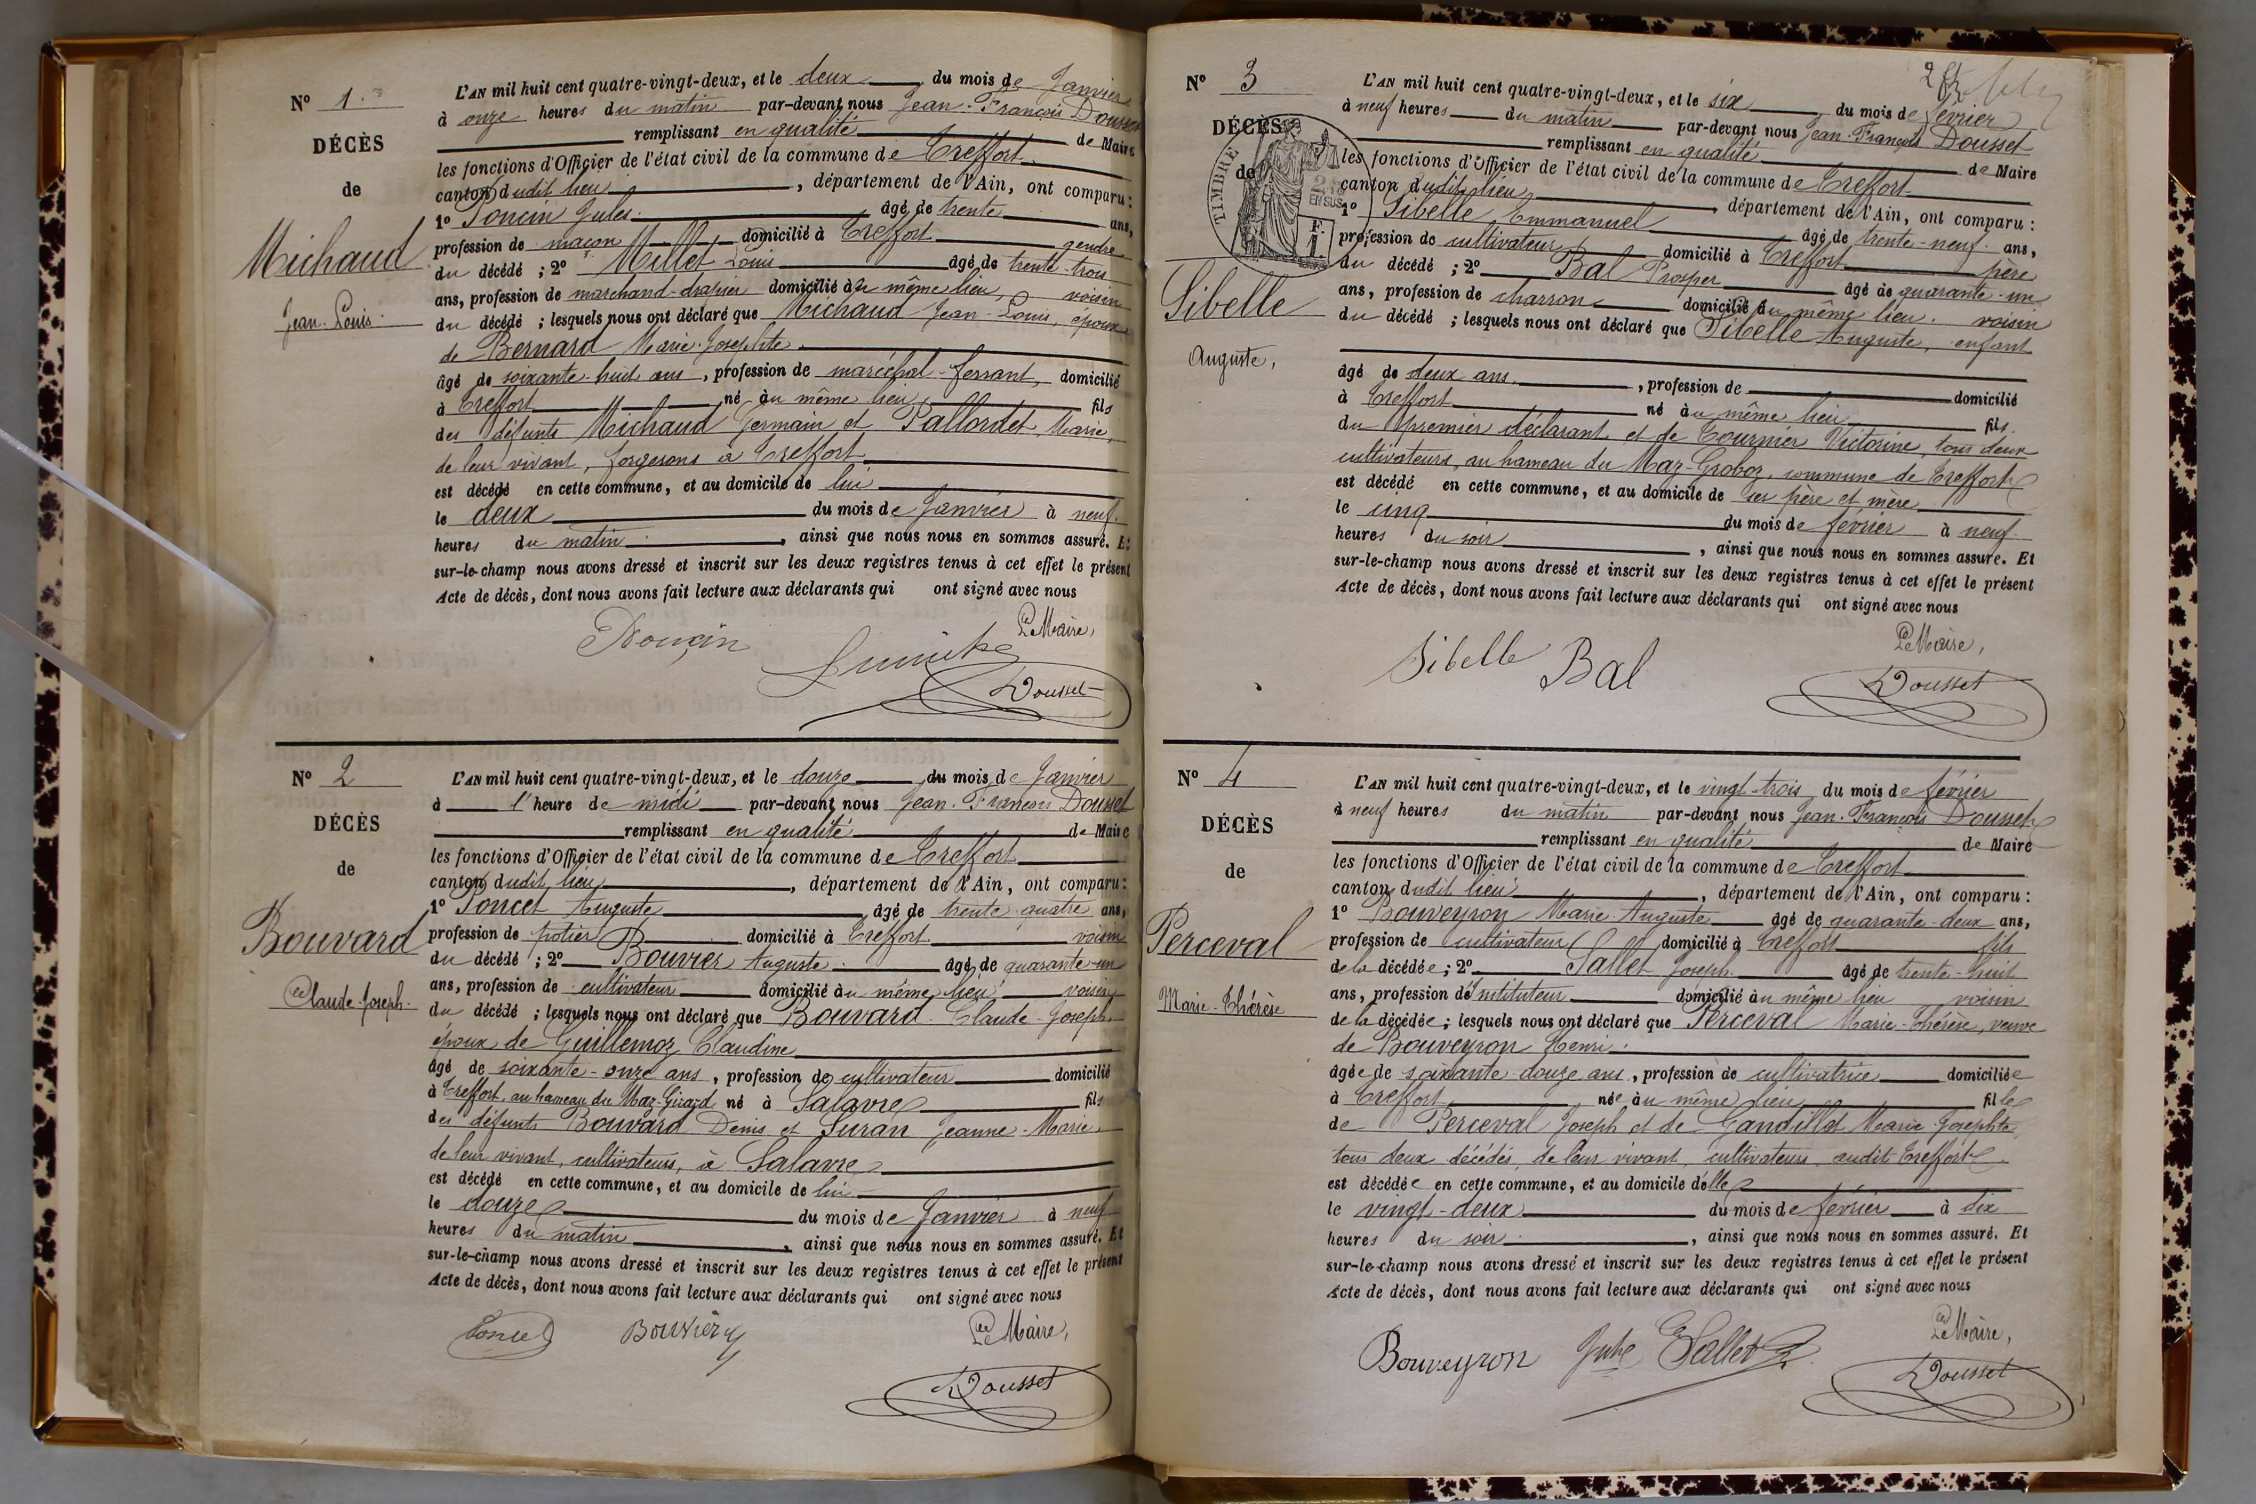 N° 1
DÉCÈS
de
Michaud
Jean-Louis
L'AN mil huit cent quatre-vingt-deux, et le deux du mois de Janvier
à onze heures du matin par-devant nous Jean-François Dousset
remplissant en qualité de Maire
les fonctions d'Officier de l'état civil de la commune de Treffort
canton dudit lieu, département de l'Ain, ont comparu :
1° Poncin Jules âgé de trente ans,
profession de maçon domicilié à Treffort gendre
du décédé ; 2° Millet Louis âgé de trente-trois
ans, profession de marchand-drapier domicilié au même lieu, voisin
du décédé ; lesquels nous ont déclaré que Michaud Jean-Louis, époux
de Bernard Marie-Josephte
âgé de soixante-huit ans, profession de maréchal-ferrant, domicilié
à Treffort né au même lieu, fils
des défunts Michaud Germain et Pallordet Marie,
de leur vivant, forgerons à Treffort
est décédé en cette commune, et au domicile de lui
le deux du mois de Janvier à neuf
heures du matin, ainsi que nous nous en sommes assuré. Et
sur-le-champ nous avons dressé et inscrit sur les deux registres tenus à cet effet le présent
Acte de décès, dont nous avons fait lecture aux déclarants qui ont signé avec nous
Le Maire,
Dousset
N° 2
DÉCÈS
de
Bouvard
Claude-Joseph
L'AN mil huit cent quatre-vingt-deux, et le douze du mois de Janvier
à l'heure de midi par-devant nous Jean-François Dousset
remplissant en qualité de Maire
les fonctions d'Officier de l'état civil de la commune de Treffort
canton dudit lieu, département de l'Ain, ont comparu :
1° Poncet Auguste âgé de trente quatre ans,
profession de potier domicilié à Treffort voisin
du décédé ; 2° Bouvier Auguste âgé de quarante-un
ans, profession de cultivateur domicilié au même lieu voisin
du décédé ; lesquels nous ont déclaré que Bouvard Claude-Joseph
époux de Guillemoz Claudine
âgé de soixante-onze ans, profession de cultivateur domicilié
à Treffort, au hameau du Maz-Girard né à Salavre fils
des défunts Bouvard Denis et Suran Jeanne-Marie
de leur vivant, cultivateurs, à Salavre
est décédé en cette commune, et au domicile de lui
le douze du mois de Janvier à neuf
heures du matin, ainsi que nous nous en sommes assuré. Et
sur-le-champ nous avons dressé et inscrit sur les deux registres tenus à cet effet le présent
Acte de décès, dont nous avons fait lecture aux déclarants qui ont signé avec nous
Poncet Bouvier Le Maire,
Dousset
N° 3
DÉCÈS
de
TIMBRE
EN SUS
F. 1.
Sibelle
Auguste,
L'AN mil huit cent quatre-vingt-deux, et le six du mois de février
à neuf heures du matin par-devant nous Jean-François Dousset
remplissant en qualité de Maire
les fonctions d'Officier de l'état civil de la commune de Treffort
canton dudit lieu, département de l'Ain, ont comparu :
1° Sibelle Emmanuel âgé de trente-neuf ans,
profession de cultivateur domicilié à Treffort père
du décédé ; 2° Bal Prosper âgé de quarante-un
ans, profession de charron domicilié au même lieu. voisin
du décédé ; lesquels nous ont déclaré que Sibelle Auguste, enfant
âgé de deux ans, profession de domicilié
à Treffort né au même lieu fils
du premier déclarant et de Tournier Victorine, tous deux
cultivateurs, au hameau du Maz-Groboz, commune de Treffort
est décédé en cette commune, et au domicile de ses père et mère
le cinq du mois de février à neuf
heures du soir, ainsi que nous nous en sommes assuré. Et
sur-le-champ nous avons dressé et inscrit sur les deux registres tenus à cet effet le présent
Acte de décès, dont nous avons fait lecture aux déclarants qui ont signé avec nous
Sibelle Bal Le Maire,
Dousset
N° 4
DÉCÈS
de
Perceval
Marie-Thérèse
L'AN mil huit cent quatre-vingt-deux, et le vingt-trois du mois de février
à neuf heures du matin par-devant nous Jean-François Dousset
remplissant en qualité de Maire
les fonctions d'Officier de l'état civil de la commune de Treffort
canton dudit lieu, département de l'Ain, ont comparu :
1° Bouveyron Marie-Auguste âgé de quarante-deux ans,
profession de cultivateur domicilié à Treffort fils
de la décédée ; 2° Sallet Joseph âgé de trente-huit
ans, profession d'Instituteur domicilié au même lieu voisin
de la décédée ; lesquels nous ont déclaré que Perceval Marie-Thérèse, veuve
de Bouveyron Henri
âgée de soixante-douze ans, profession de cultivatrice domiciliée
à Treffort née au même lieu fille
de Perceval Joseph et de Gandillet Marie-Josephte,
tous deux décédés, de leur vivant, cultivateurs, audit Treffort
est décédée en cette commune, et au domicile d'elle
le vingt-deux du mois de février à dix
heures du soir, ainsi que nous nous en sommes assuré. Et
sur-le-champ nous avons dressé et inscrit sur les deux registres tenus à cet effet le présent
Acte de décès, dont nous avons fait lecture aux déclarants qui ont signé avec nous
Bouveyron Sallet Le Maire,
Dousset